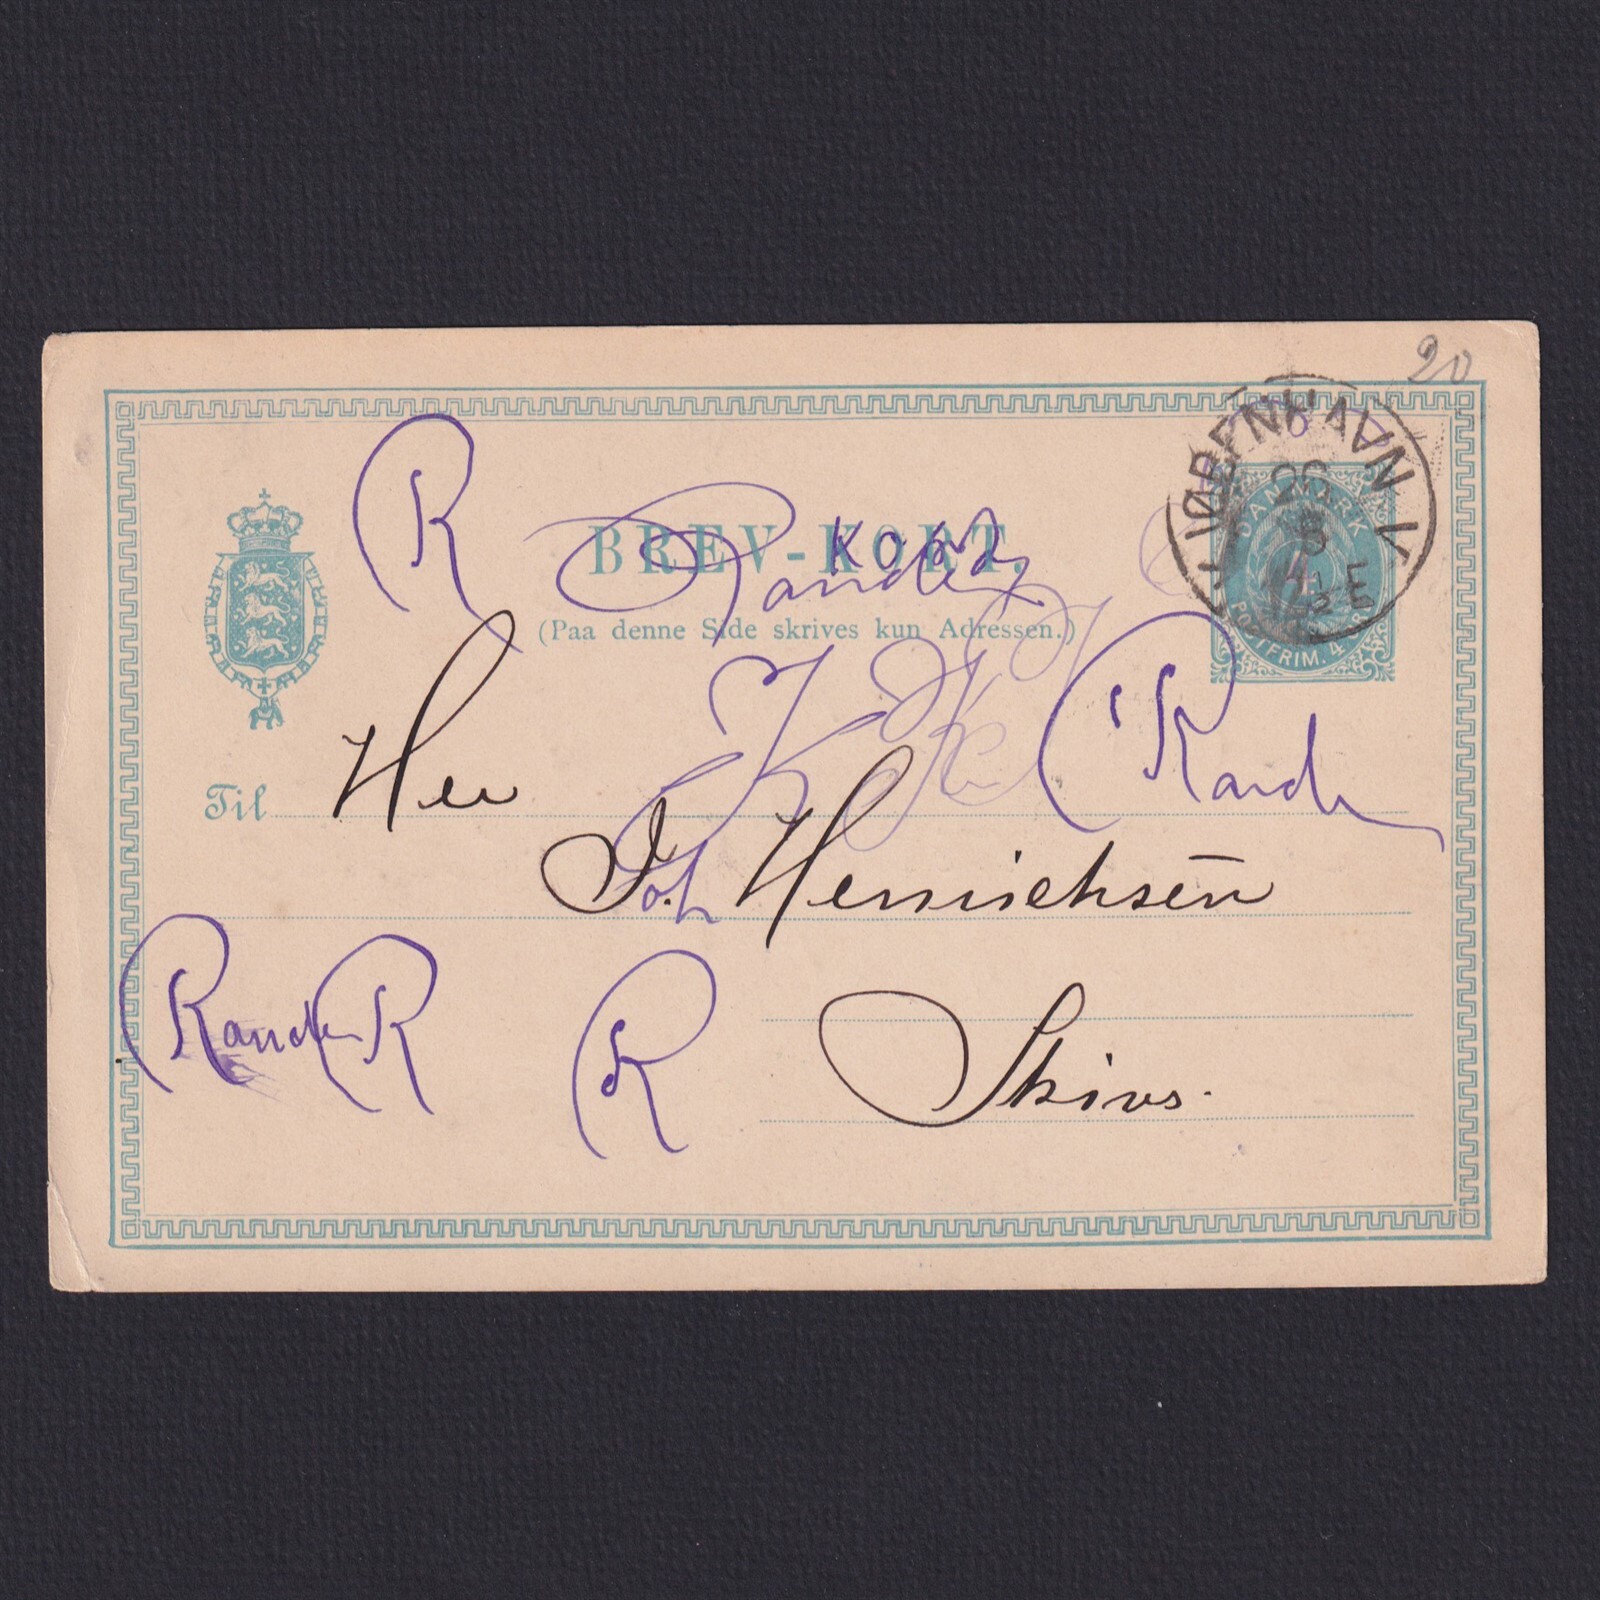 20
KJØBENHAVN V
26
8
DANMARK
POSTFRIM. 4
R
BREV-KORT.
Randers
(Paa denne Side skrives kun Adressen.)
K
Rand
Til Herr
J. Henrichsen
Joh
Randers R
R
Skive.